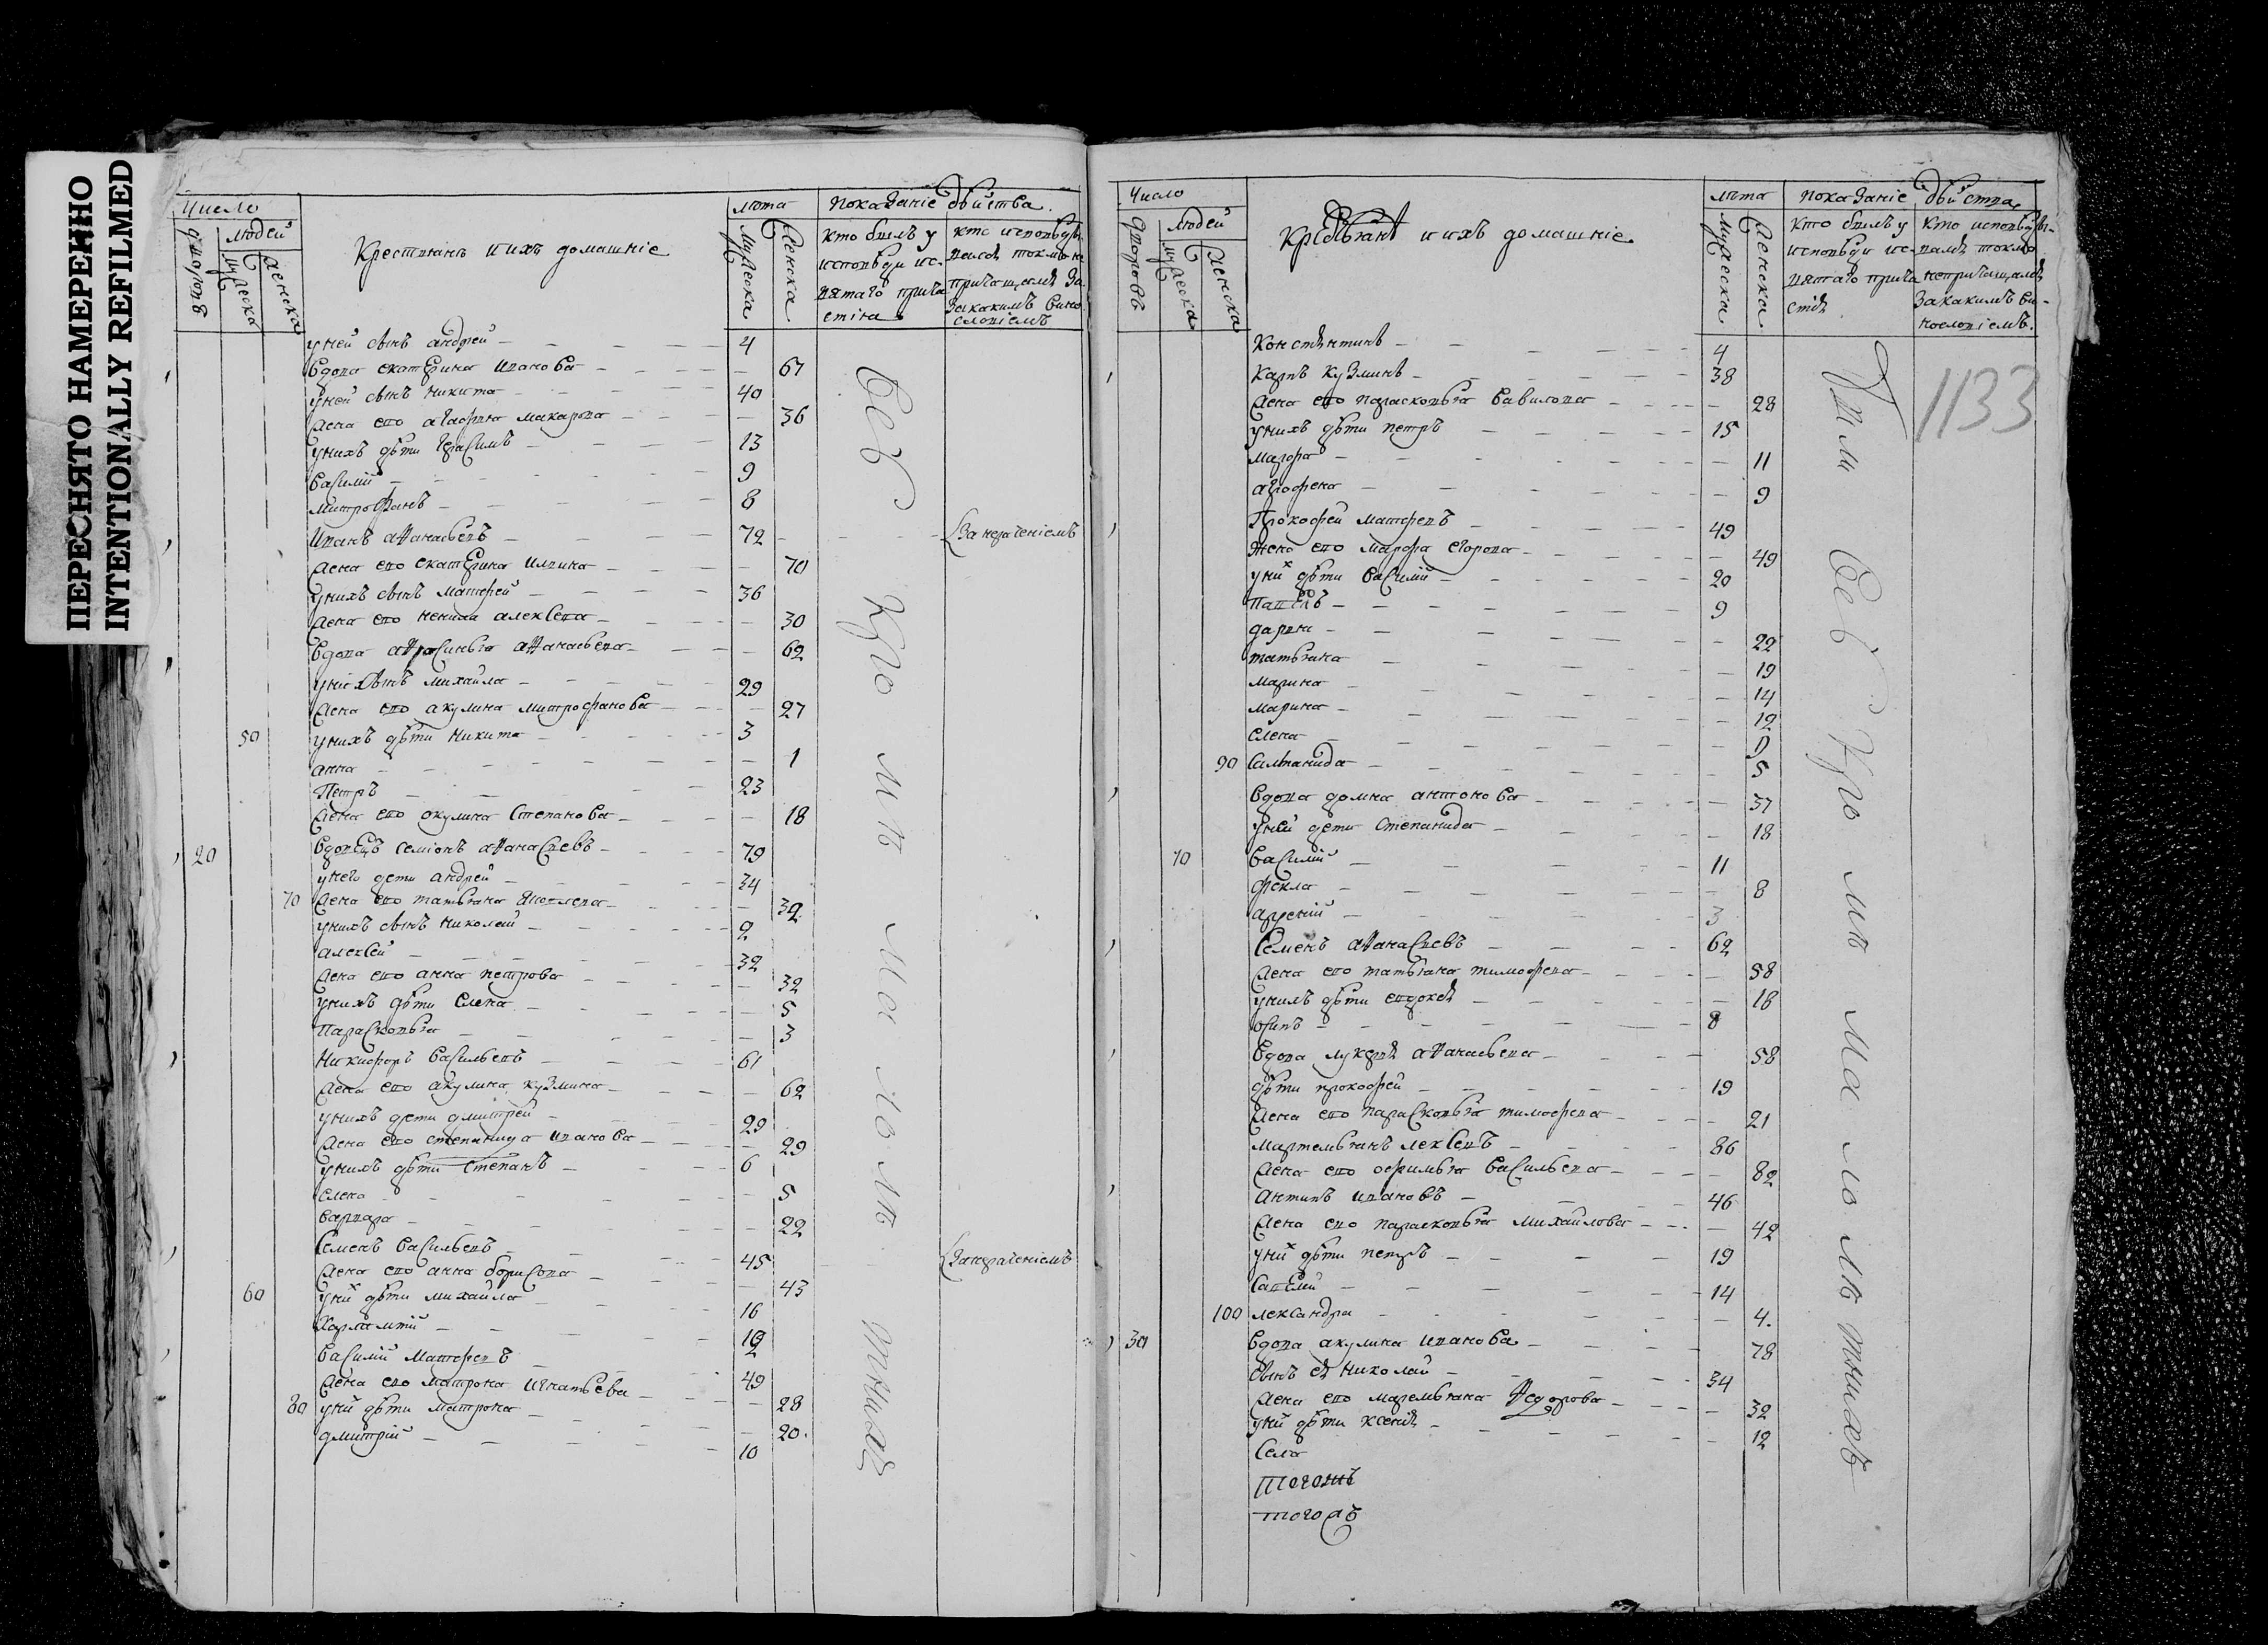 ПЕРЕСНЯТО НАМЕРЕННО
INTENTIONALLY REFILMED
Число
людей
мужеска
женска
Крестьянъ и ихъ домашніе
лѣта
мужеска
женска
показаніе дѣйства
кто былъ у
исповѣди и с-
вятаго прича
стія
у ней сынъ андрей 4
вдова екатерина иванова 67
у ней сынъ никита 40
жена ево агафия макарова 36
у нихъ дѣти герасимъ 13
василій 9
митрофанъ 8
иванъ аѳанасьевъ 72 за нерачениемъ
жена ево екатерина 70
у нихъ сынъ матфей 36
жена ево алексева 30
вдова аѳанасьева 62
сынъ михайла 29
жена ево акулина митрофанова 27
50 у нихъ дѣти никита 3
анна 1
Петръ 23
жена ево окулина степанова 18
20 вдовецъ семіонъ аѳанасиевъ 79
у него дети андрей 34
70 жена ево татьяна 32
у нихъ сынъ николай 2
алексей 32
жена ево анна петрова 32
у нихъ дѣти елена 5
парасковья 3
никифоръ васильевъ 61
жена ево акулина кузмина 62
у нихъ дети дмитрей 29
жена ево степанида иванова 29
у нихъ дѣти степанъ 6
елена 5
варвара 22
семенъ васильевъ 45
жена ево анна борисова 43
60 у них дѣти михайла 16
12
василий матфевъ 49
жена ево матрона игнатьева 28
80 у них дѣти матрона 20
дмитрій 10
всѣ
Число
дворовъ
людей
мужеска
женска
крестьянъ и ихъ домашніе
лѣта
мужеска
женска
показаніе дѣйства
кто былъ у
исповѣди и с-
вятаго прича
стія
кто исповѣды-
валя токмо
непричащался
за какимъ ви-
нословіемъ
1133
константинъ 4
карпъ кузминъ 38
жена ево парасковья вавилова 28
у нихъ дѣти петръ 15
марфа 11
агафена 9
Прокофей матфевъ 49
жена ево марфа егорова 49
у них дѣти василій 20
павелъ 9
дария 22
татьяна 19
марина 14
марина 12
елена 9
90 5
вдова домна антонова 37
у ней дети степанида 18
70 василій 11
фекла 8
арсений 3
семенъ аѳанасиевъ 62
жена ево татьяна тимофева 58
у нихъ дѣти евдокея 18
осипъ 8
вдова лукеря аѳанасьева 58
дѣти прокофей 19
жена ево парасковья тимофева 21
мартемьянъ лексевъ 86
жена ево офимья васильева 82
антипъ ивановъ 46
жена ево парасковья михайлова 42
у них дѣти петръ 19
савелий 14
100 лександра 4
30 вдова акулина иванова 78
сынъ ея николай 34
жена ево маремьяна ѳедорова 32
у них дѣти ксения 12
села
тогожъ
тогожъ
всѣ кромѣ малолѣтнихъ